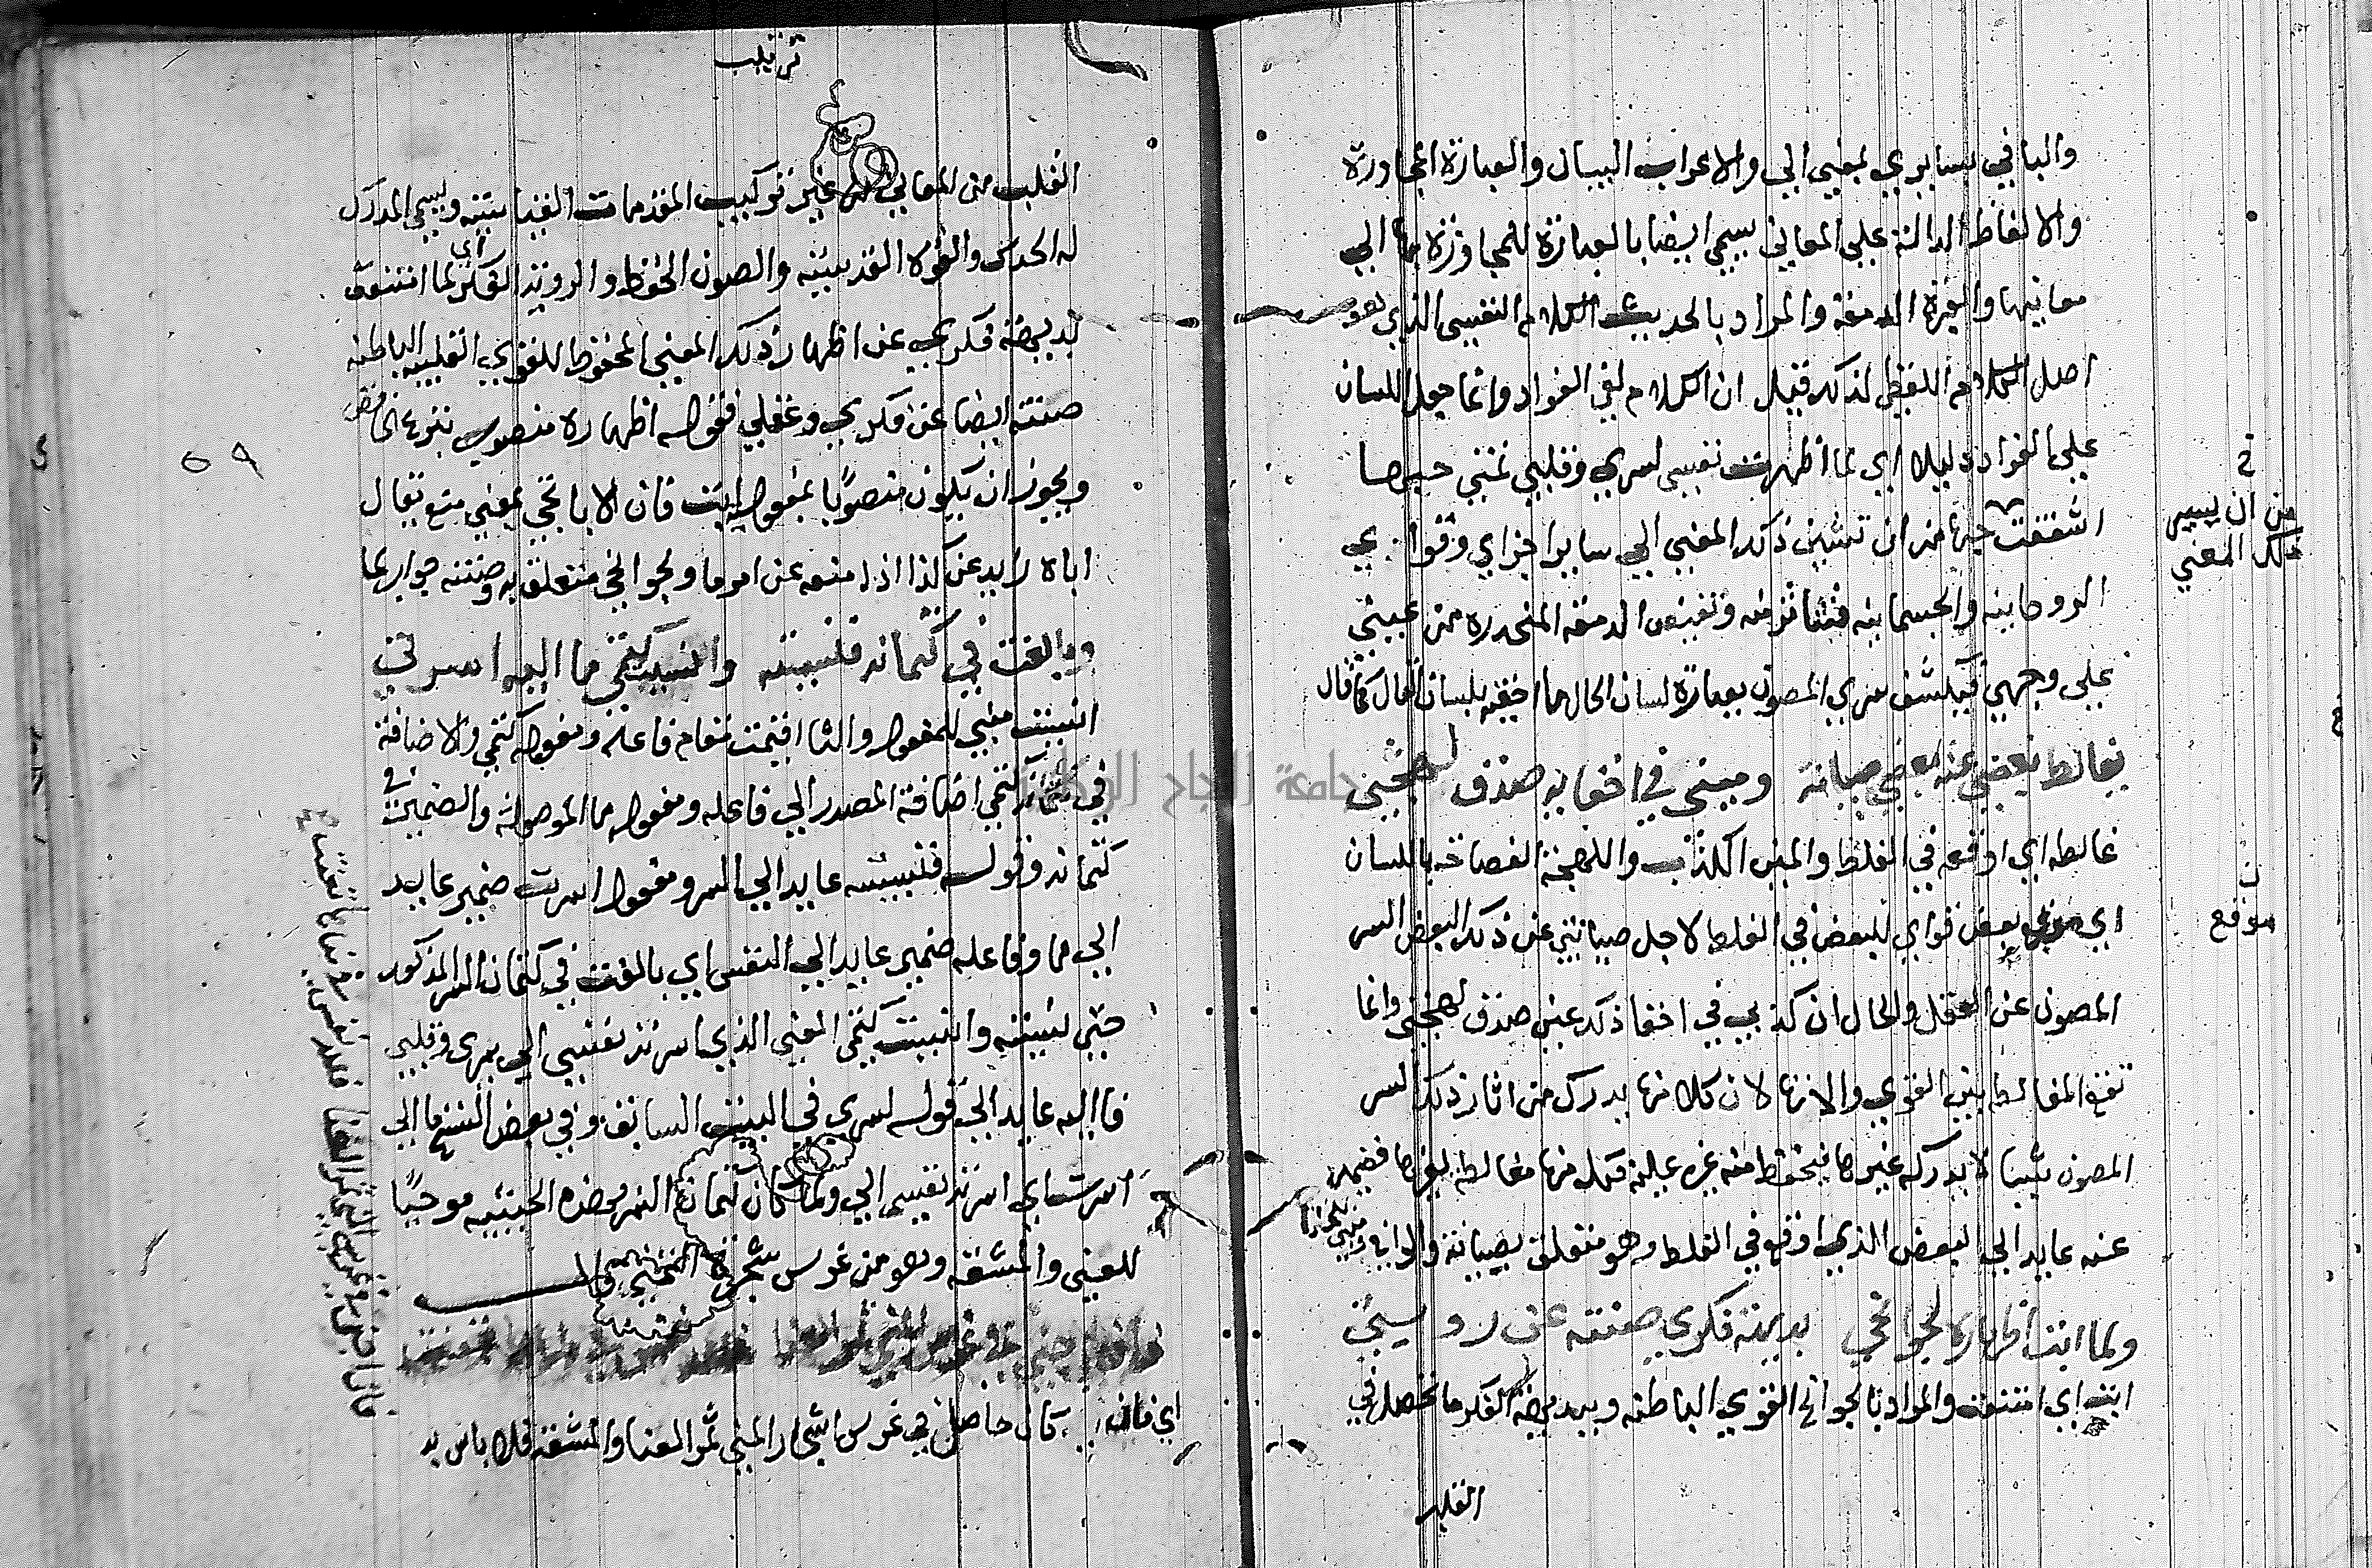 والباقي بسايري بمعني الي والاعراب البيان والعبارة المجاورة
والالفاظ الدالة علي المعاني يسمي ايضا بالعبارة للمجاوزة بها الي
معانيها والعبرة الدمعة والمراد بالحديث الكلام النفسي الذي هو
اصل الكلام اللفظي لذلك قيل ان الكلام لفي الفواد وانما جعل اللسان
علي الفواد دليلا اي لما اظهرت نفسي لسري وقلبي تمني حبها
اشفقت من ان تسير ذلك المعني الي ساير اجزاي وقواي
من ان يسير
ذلك المعني
الروحانية والجسمانية فتتاثر منه وتفيض الدمعة المنحدرة من عيني
علي وجهي فيكشف سري المصون بعبارة لسان الحال ما اخفيه بلسان القال كما قال
يغالط بعضي عنه بعضي صيانة وميني في اخفايه صدق لهجتي
غالطه اي اوقعه في الغلط والمين الكذب واللهجة الفصاحة باللسان
اي يوقع بعض قواي للبعض في الغلط لاجل صيانتي عن ذلك البعض السر
موقع
المصون عن العقل والحال ان كذبي في اخفا ذلك عين صدق لهجتي وانما
تقع المغالطة بين القوي والانها لان كلا منها يدرك من اثار ذلك السر
المصون شيئا لا يدركه غيرها فيحفظ منه غيره عليه فكل منها مغالطة لغيرها فضمير
عنه عايد الي البعض الذي اوقع في الغلط وهو متعلق بصيانة
ولما ابت اظهاره لجوانحي بديهة فكري صنته عن رويتي
ابت اي امتنعت والمراد بالجوانح القوي الباطنة وببديهة الفكر ما تحصل في
القلب
القلب من المعاني من غير تركيب المقدمات القياسية ويسمي المدرك
له الحدس والقوة القدسية والصون الحفظ والروية الفكر اي لما امتنعت
بديهة فكري عن اظهار ذلك المعني المحفوظ للقوي القلبية الباطنة
صنته ايضا عن فكري وعقلي فقوله اظهاره منصوب بنزع الخافض
ويجوز ان يكون منصوبا بمفعول ابت فان الابا تجي بمعني منع يقال
اباه زيد عن كذا اذا منعه عن امر ما ولجوانحي متعلق به وصنته جواب لما
وبالغت في كتمانه فنسيته وانسيت كتمي ما اليه اسرت
انسيت مبني للمفعول والتا اقيمت مقام فاعله ومفعوله كتمي والاضافة
في كتمي اضافة المصدر الي فاعله ومفعوله ما الموصولة والضمير في
كتمانه وقوله فنسيته عايد الي السر ومفعول اسرت ضمير عايد
الي ما وفاعله ضمير عايد الي النفس اي بالغت في كتمان السر المذكور
حتي نسيته وانسيت كتمي المعني الذي اسرته نفسي الي سري وقلبي
فاليه عايد الي قوله لسري في البيت السابق وفي بعض النسخ ما الي
اسرت اي اسرته نفسي الي ولما كان كتمان السر بهذه الحيثية موجبا
للعني والمشقة وهو من غرس شجرة التمني قال
اي فان كان حاصلي في غرس اشجار المني ثمر العنا والمشقة فلا باس به